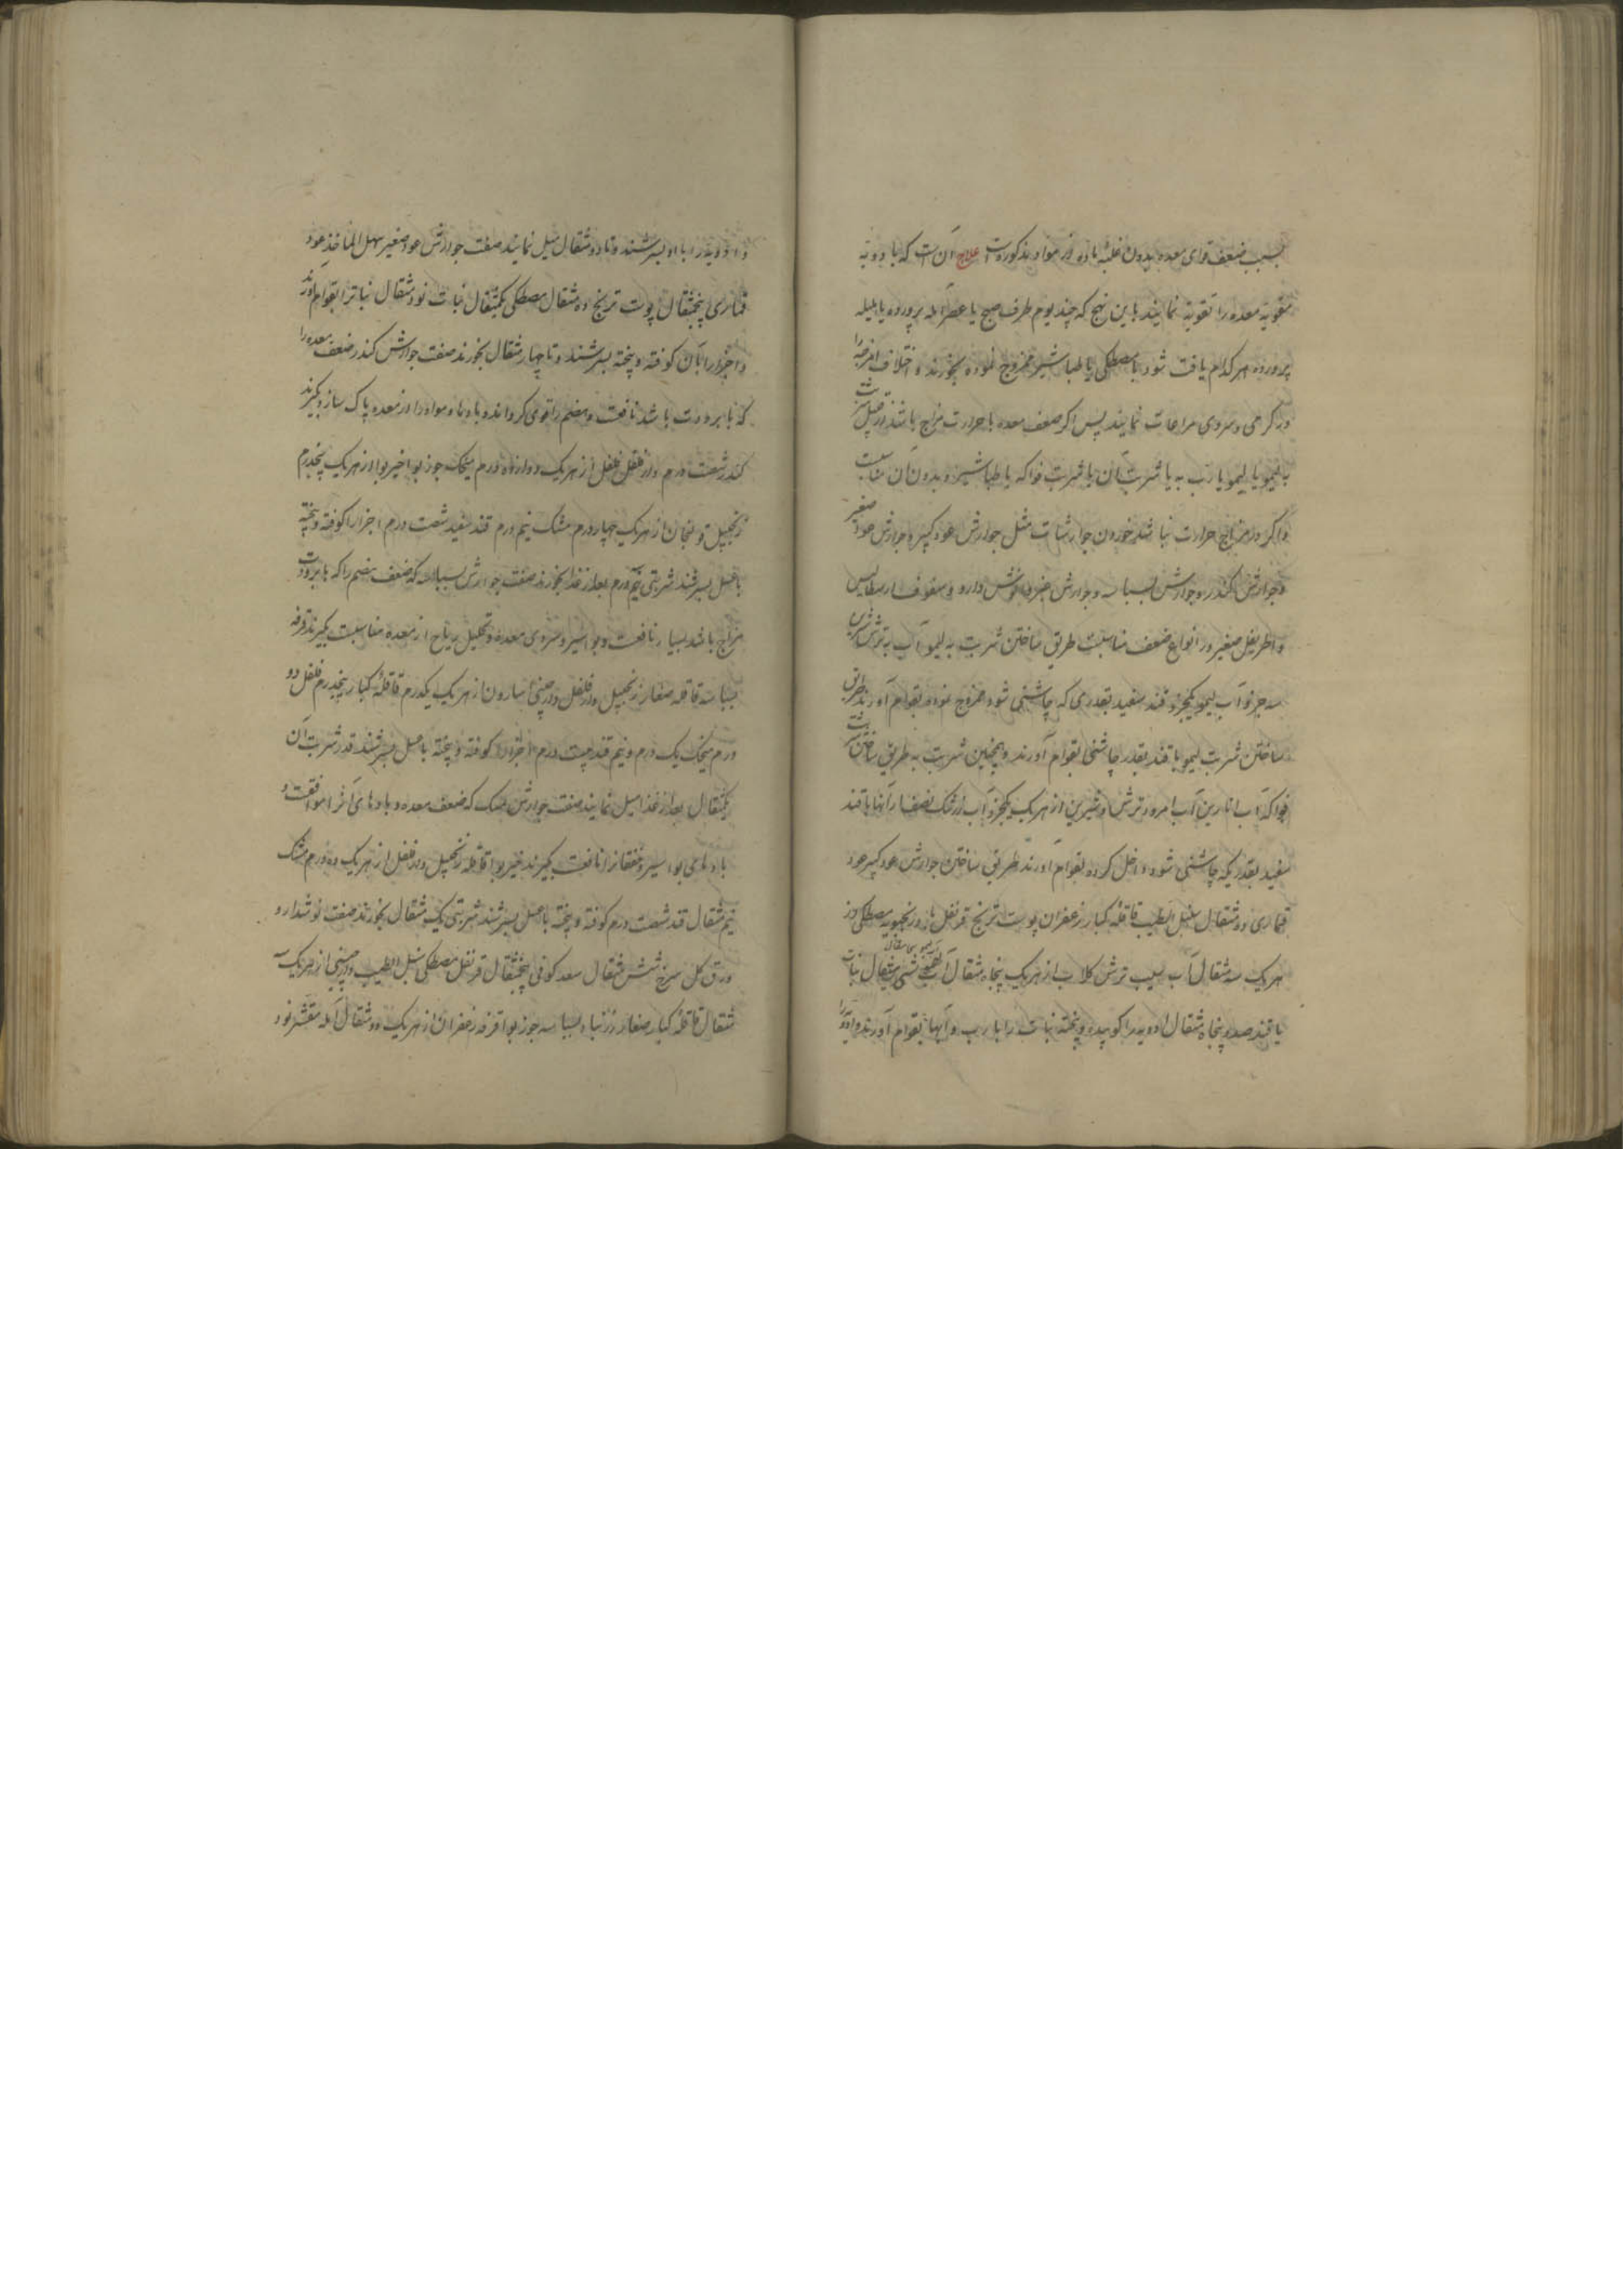 بسبب ضعف قوای معده بدون غلبه ماده از مواد مذکورست علاج آن است که بادویه
مقویه معده را تقویة نمایند باین نهج که چند یوم طرف صبح یا عصر آمله پرورده یا هلیله
پرورده هر کدام یافت شود با مصطکی یا طباشیر ممزوج نموده بخورند و اختلاف امزجه را
در گرمی و سردی مراعات نمایند پس اگر ضعف معده با حرارت مزاج باشد
به لیمو یا لیمو یا رب به یا شربت آن یا شربت فواکه یا طباشیر و بدون آن مناسبست
و اگر در مزاج حرارت نباشد خوردن جوارشات مثل جوارش عود کبیر یا جوارش عود صغیر
و جوارش کندر و جوارش بسباسه و جوارش و نوش دارو و سفوف ارسطالیس
و اطریفل صغیر در انواع ضعف مناسبت طریق ساختن شربت به لیمو آب به ترش شیرین
سه جزو آب لیمو یکجزو قند سفید بقدری که چاشنی شود ممزوج نموده بقوام آورند طریق
ساختن شربت لیمو با قند بقدر چاشنی بقوام آورند و همچنین شربت به طریق ساختن شربت
فواکه آب انارین آب امرود ترش و شیرین از هر یک یکجزو آب زرشک نصف آنها با قند
سفید بقدریکه چاشنی شود داخل کرده بقوام آورند طریق ساختن جوارش عود کبیر عود
قماری ده مثقال سنبل الطیب قاقله کبار زعفران پوست ترنج قرنفل بادرنجبویه مصطکی از
هر یک سه مثقال آب سیب ترش گلاب از هر یک پنجاه مثقال آب مثقال نبات
یا قند صد و پنجاه مثقال ادویه را کوبیده و پخته نبات را با رب و آبها بقوام آورند و ادویه را
و ادویه را با او بسرشند و تا دو مثقال میل نمایند صفت جوارش عود صغیر سهل الماخذ عود
قماری پنجمثقال پوست ترنج ده مثقال مصطکی یکمثقال نبات نود مثقال نبات را بقوام آورند
و اجزا را بآن کوفته و پخته بسرشند و تا چهار مثقال بخورند صفت جوارش کندر ضعف معده را
که با برودت باشد نافعست و هضم را قوی گرداند و بادها و مواد را از معده پاک سازد بگیرند
کندر شصت درم دارفلفل فلفل از هر یک دوازده درم میخک جوزبوا خیربوا از هر یک پنجدرم
زنجبیل قولنجان از هر یک چهار درم مشک نیم درم قند سفید شصت درم اجزا را کوفته و پخته
با عسل بسرشند شربتی نیم درم بعد از غذا بخورند صفت جوارش بسباسه که ضعف هضم را که با برودت
مزاج باشد بسیار نافعست و بواسیر و سردی معده و تحلیل ریاح از معده مناسبت بگیرند قرفه
بسباسه قاقله صغار زنجبیل دارفلفل دارچینی اسارون از هر یک یکدرم قاقله کبار پنجدرم فلفل دو
درم میخک یک درم و نیم قند بیست درم اجزا را کوفته و پخته با عسل بسرشند قدر شربت آن
یکمثقال بعد از غذا میل نمایند صفت جوارش مسک که ضعف معده و بادهای آنرا موافقست و
بادهای بواسیر و خفقان را نافعست بگیرند خیربوا قاقله زنجبیل دارفلفل از هر یک ده درم مشک
نیم مثقال قند شصت درم کوفته و پخته با عسل بسرشند شربتی یک مثقال بخورند صفت نوشدارو
ورق گل سرخ شش مثقال سعد کوفی پنجمثقال قرنفل مصطکی سنبل الطیب دارچینی از هر یک سه
مثقال قاقله کبار صغار زرنباد بسباسه جوزبوا قرفه زعفران از هر یک دو مثقال آمله مقشر نود